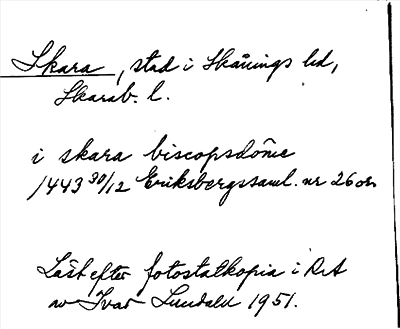 Skara, stad i Skånings hd,
Skarab. l.
i skara biscopsdöme
1443 30/12 Eriksbergssaml. nr 26 or.
Läst efter fotostatkopia i RA
av Ivar Lundahl 1951.